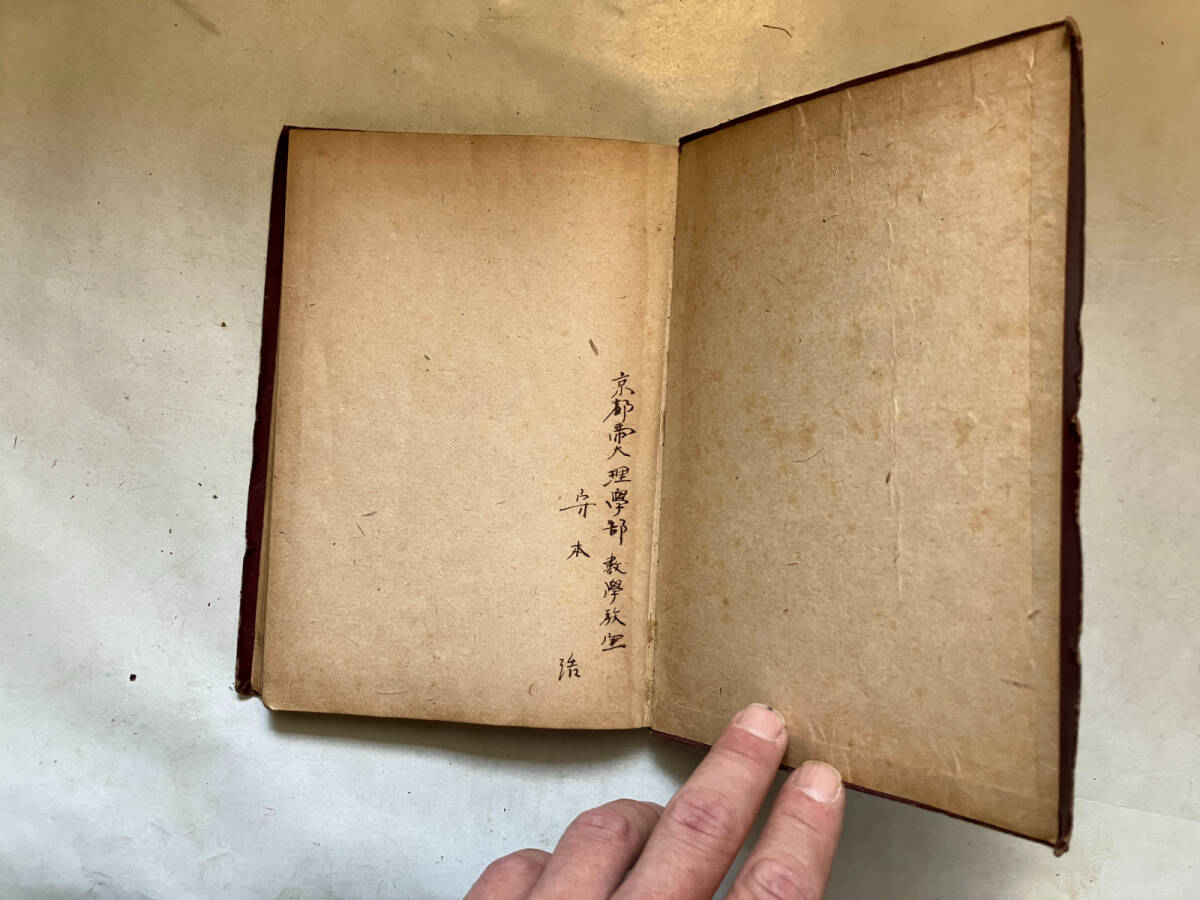 京都帝大理學部數學教室
宇本 治